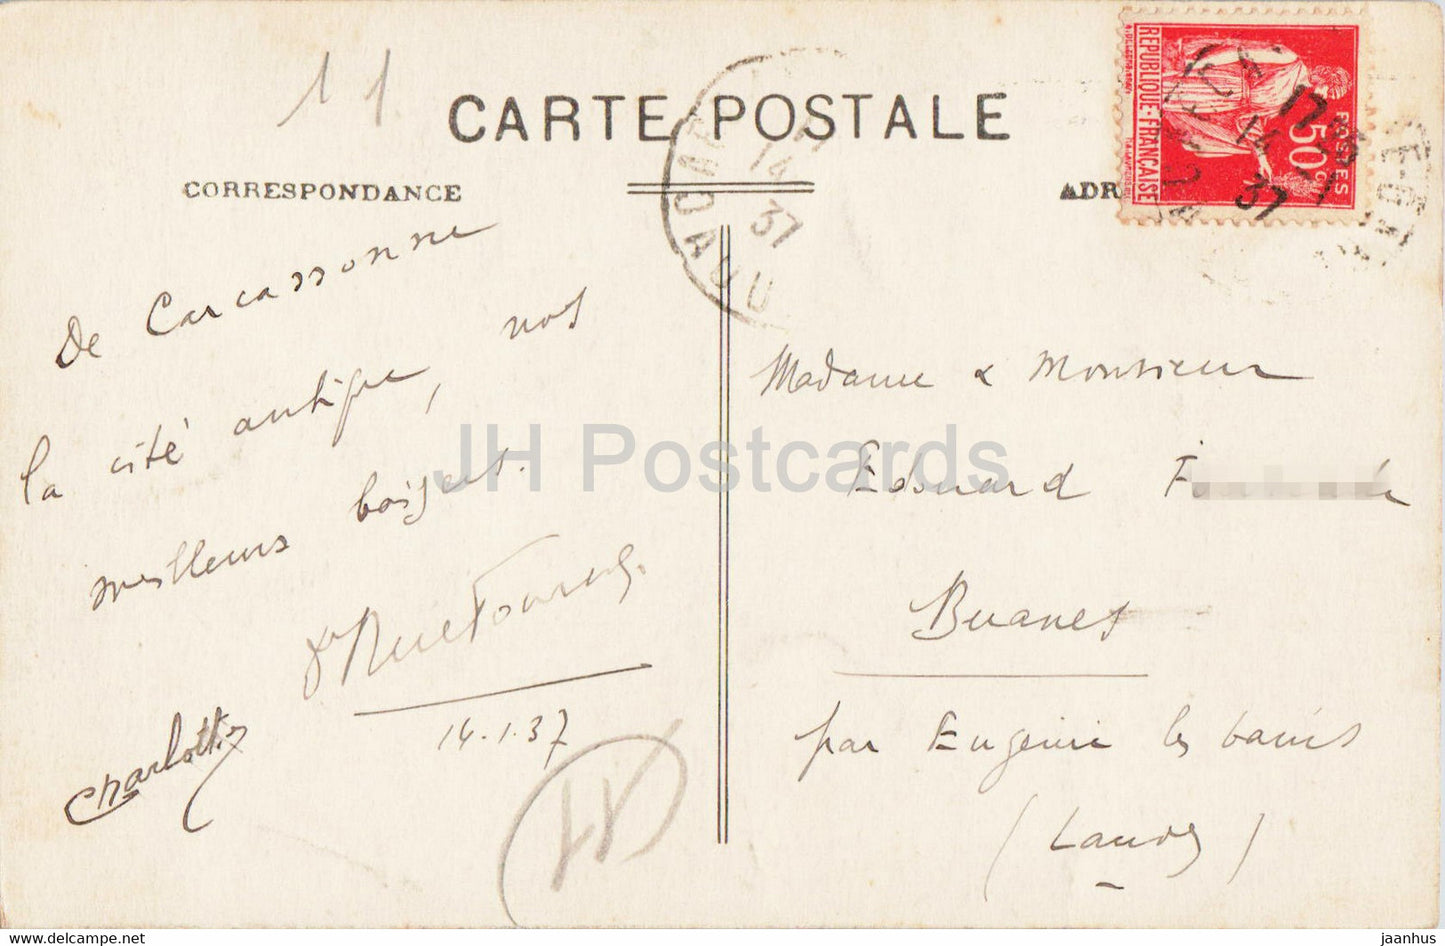 11
CARTE POSTALE
CORRESPONDANCE
ADR
REPUBLIQUE-FRANÇAISE
POSTES
50c
17
14 1
37
AUDE
14
37
De Carcassonne
la cité antique, nos
meilleurs baisers.
14.1.37
Charlotte
Madame & Monsieur
Edouard
Buanes
par Eugénie les bains
(Landes)
JH Postcards
jaanhus.ecrater.com
jaanhus